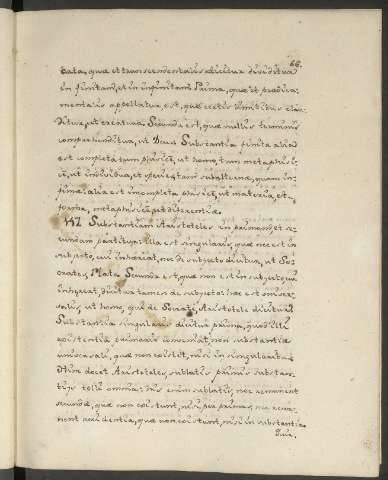 66.
data, quæ et transcendentalis dicitur dividitur
in finitam, et in infinitam. Prima, quæ et prædica-
mentalis appellatur est, quæ certis limitibus clau-
ditur, ut creatura. Secunda est, quæ nullis terminis
comprehenditur, ut Deus. Substantia finita alia
est completa tum physicè, ut homo, tum metaphysi-
cè, ut individua, et species tam subalterna, quam in-
fima: alia est incompleta physicè, ut materia, et
forma, metaphysicè, ut differentia.
Substantiam Aristoteles in primam, et se-
cundam partitur. Illa est singularis, quæ nec est in
subjecto, cui inhæreat, nec de subjecto dicitur, ut So-
crates, Plato. Secunda est, quæ non est in subjecto, cui
inhæreat, dicitur tamen de subjecto: hæc est univer-
salis, ut homo, qui de Socrate, Aristotele dicitur.
Substantia singularis dicitur prima, quod illi
existentia primario conveniat, non substantiæ
universali, quæ non existit, nisi in singularibus.
Hinc docet Aristoteles, sublatis primis substan-
tiis tolli omnia: his enim sublatis, nec remanent
secundæ, quæ non existunt, nisi per primas, nec rema-
nent accidentia, quæ non existunt, nisi in substantia.